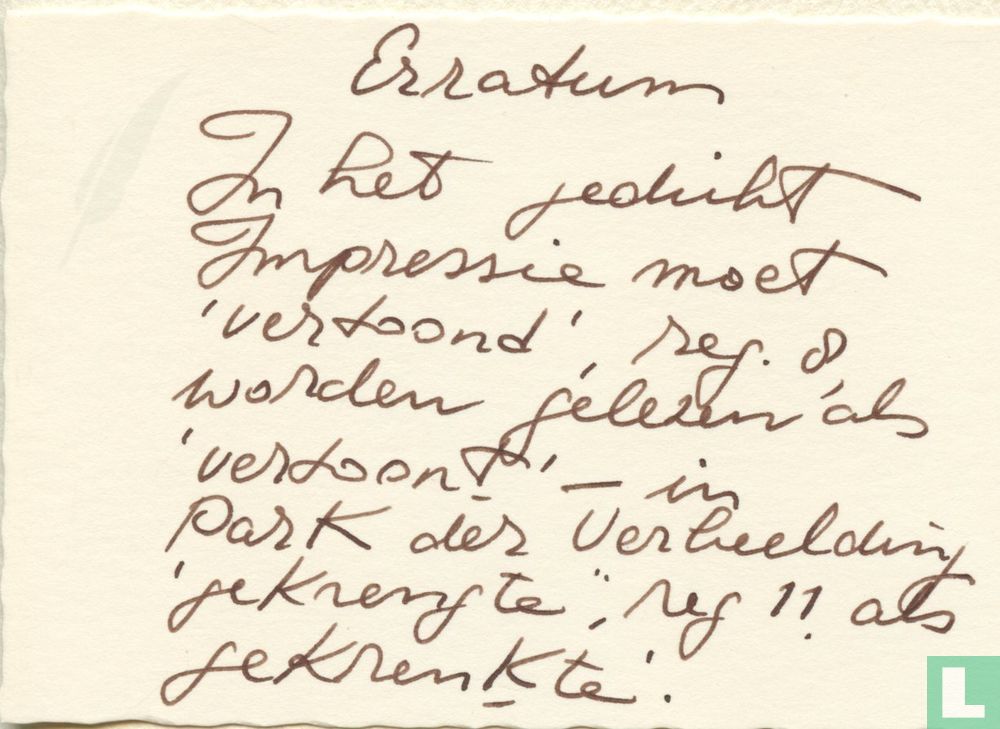 Erratum
In het gedicht
Impressie moet
'vertoond', reg. 8,
worden gelezen als
'vertoont' – in
Park der Verbeelding
'gekrengte", reg 11 als
gekrenkte'.
L